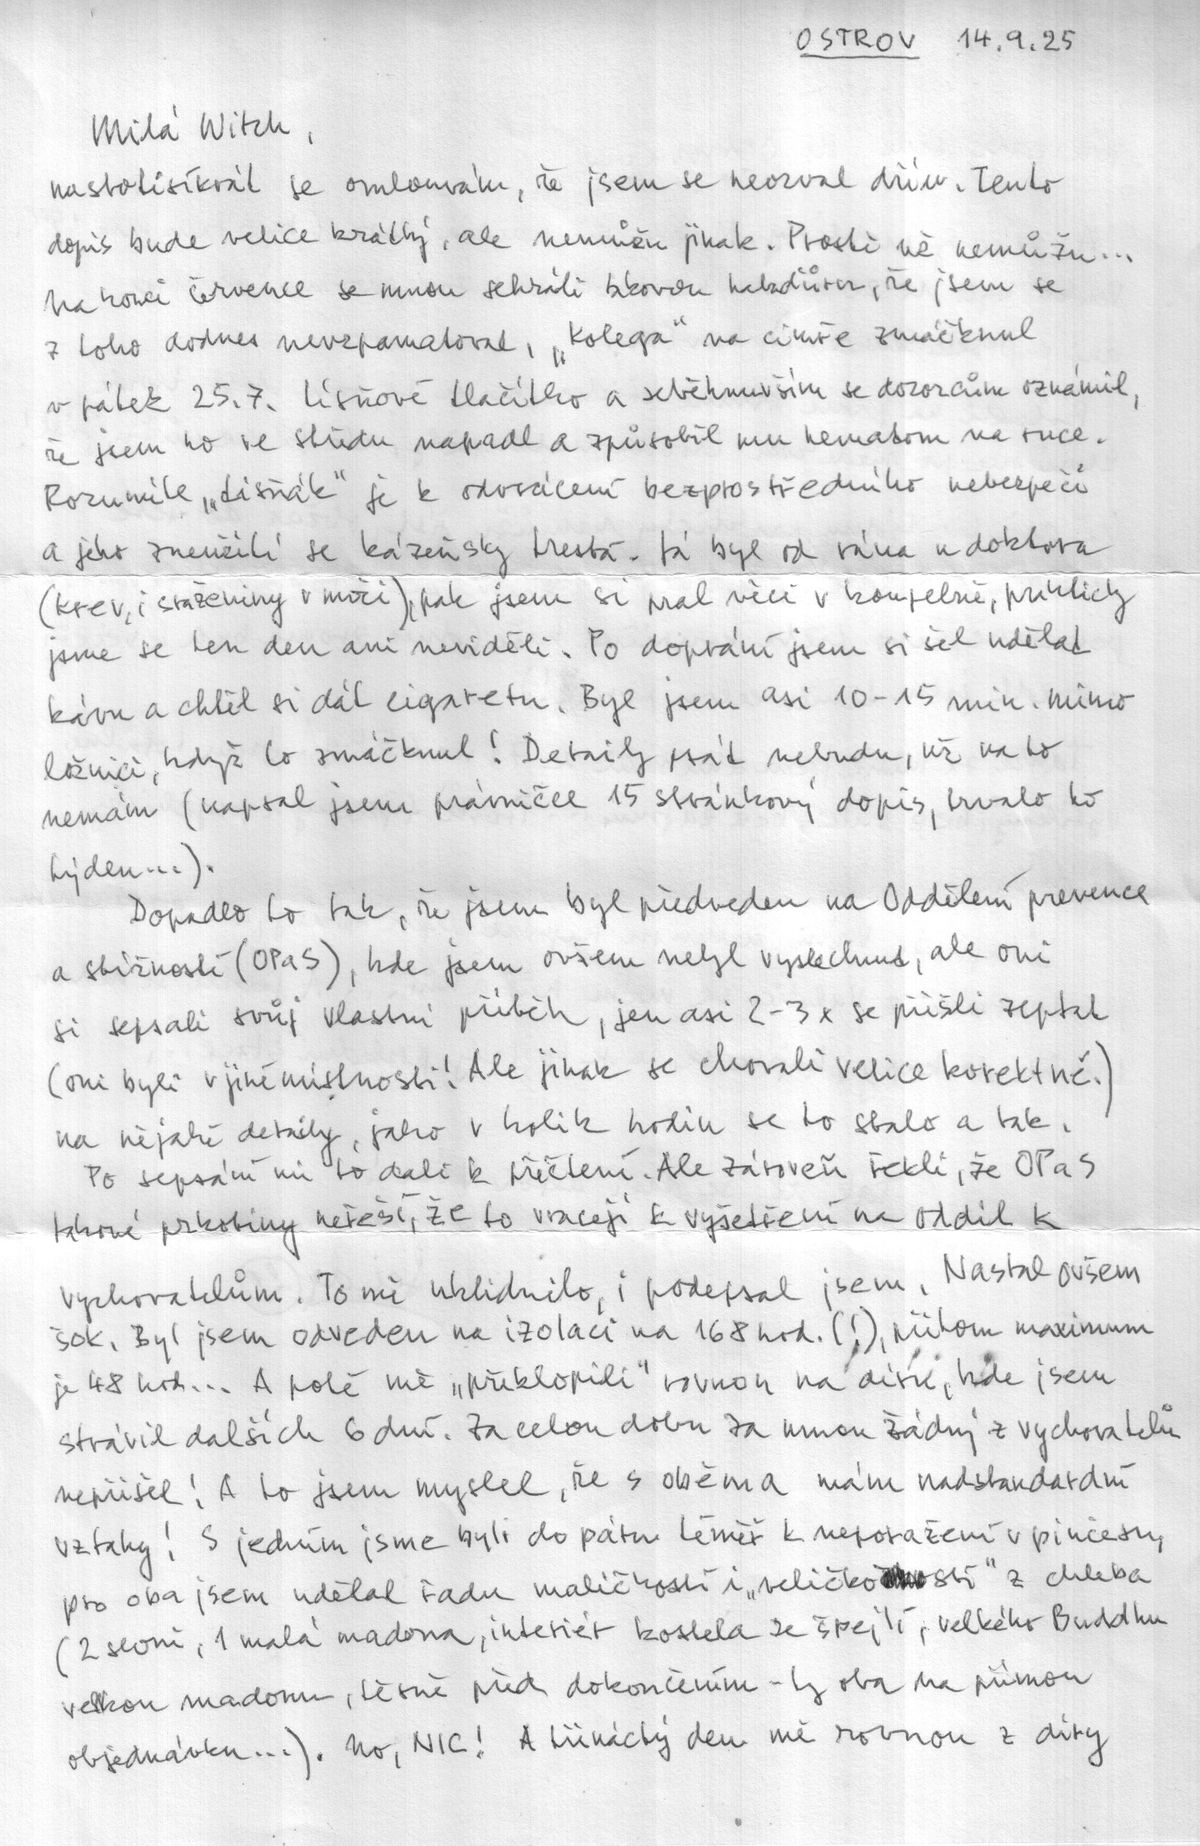 OSTROV 14.9.25
Milá Witch,
nastotisíkrát se omlouvám, že jsem se neozval dřív. Tento
dopis bude velice krátký, ale nemůžu jinak. Prostě ne nemůžu...
Na konci července se mnou sehráli takovou habaďůru, že jsem se
z toho dodnes nevzpamatoval. „Kolega“ na cimře zmáčknul
v pátek 25.7. tísňové tlačítko a seběhnuvším se dozorcům oznámil,
že jsem ho ve středu napadl a způsobil mu hematom na ruce.
Rozumíte, „tísňák“ je k odvrácení bezprostředního nebezpečí
a jeho zneužití se kázeňsky trestá. Já byl od rána u doktora
(krev, i sraženiny v moči), pak jsem si pral věci v koupelně, prakticky
jsme se ten den ani neviděli. Po doprání jsem si šel udělat
kávu a chtěl si dát cigaretu. Byl jsem asi 10-15 min. mimo
ložnici, když to zmáčknul! Detaily psát nebudu, už na to
nemám (napsal jsem právničce 15 stránkový dopis, trvalo to
týden...).
Dopadlo to tak, že jsem byl předveden na Oddělení prevence
a stížností (OPaS), kde jsem ovšem nebyl vyslechnut, ale oni
si sepsali svůj vlastní příběh, jen asi 2-3x se přišli zeptat
(oni byli v jiné místnosti! Ale jinak se chovali velice korektně.)
na nějaké detaily, jako v kolik hodin se to stalo a tak.
Po sepsání mi to dali k přečtení. Ale zároveň řekli, že OPaS
takové prkotiny neřeší, že to vracejí k vyšetření na oddíl k
vychovatelům. To mě uklidnilo, i podepsal jsem. Nastal ovšem
šok. Byl jsem odveden na izolaci na 168 hod. (!), přitom maximum
je 48 hod... A poté mě „překlopili“ rovnou na díru, kde jsem
strávil dalších 6 dní. Za celou dobu za mnou žádný z vychovatelů
nepřišel! A to jsem myslel, že s oběma mám nadstandardní
vztahy! S jedním jsme byli do pátu téměř k neporažení v pinčesu,
pro oba jsem udělal řadu maličkostí i „veličkostí“ z chleba
(2 sloni, 1 malá madona, interiér kostela ze špejlí, velkého Buddhu
velkou madonu, těsně před dokončením - ty oba na přímou
objednávku...). No, NIC! A třináctý den mě rovnou z díry